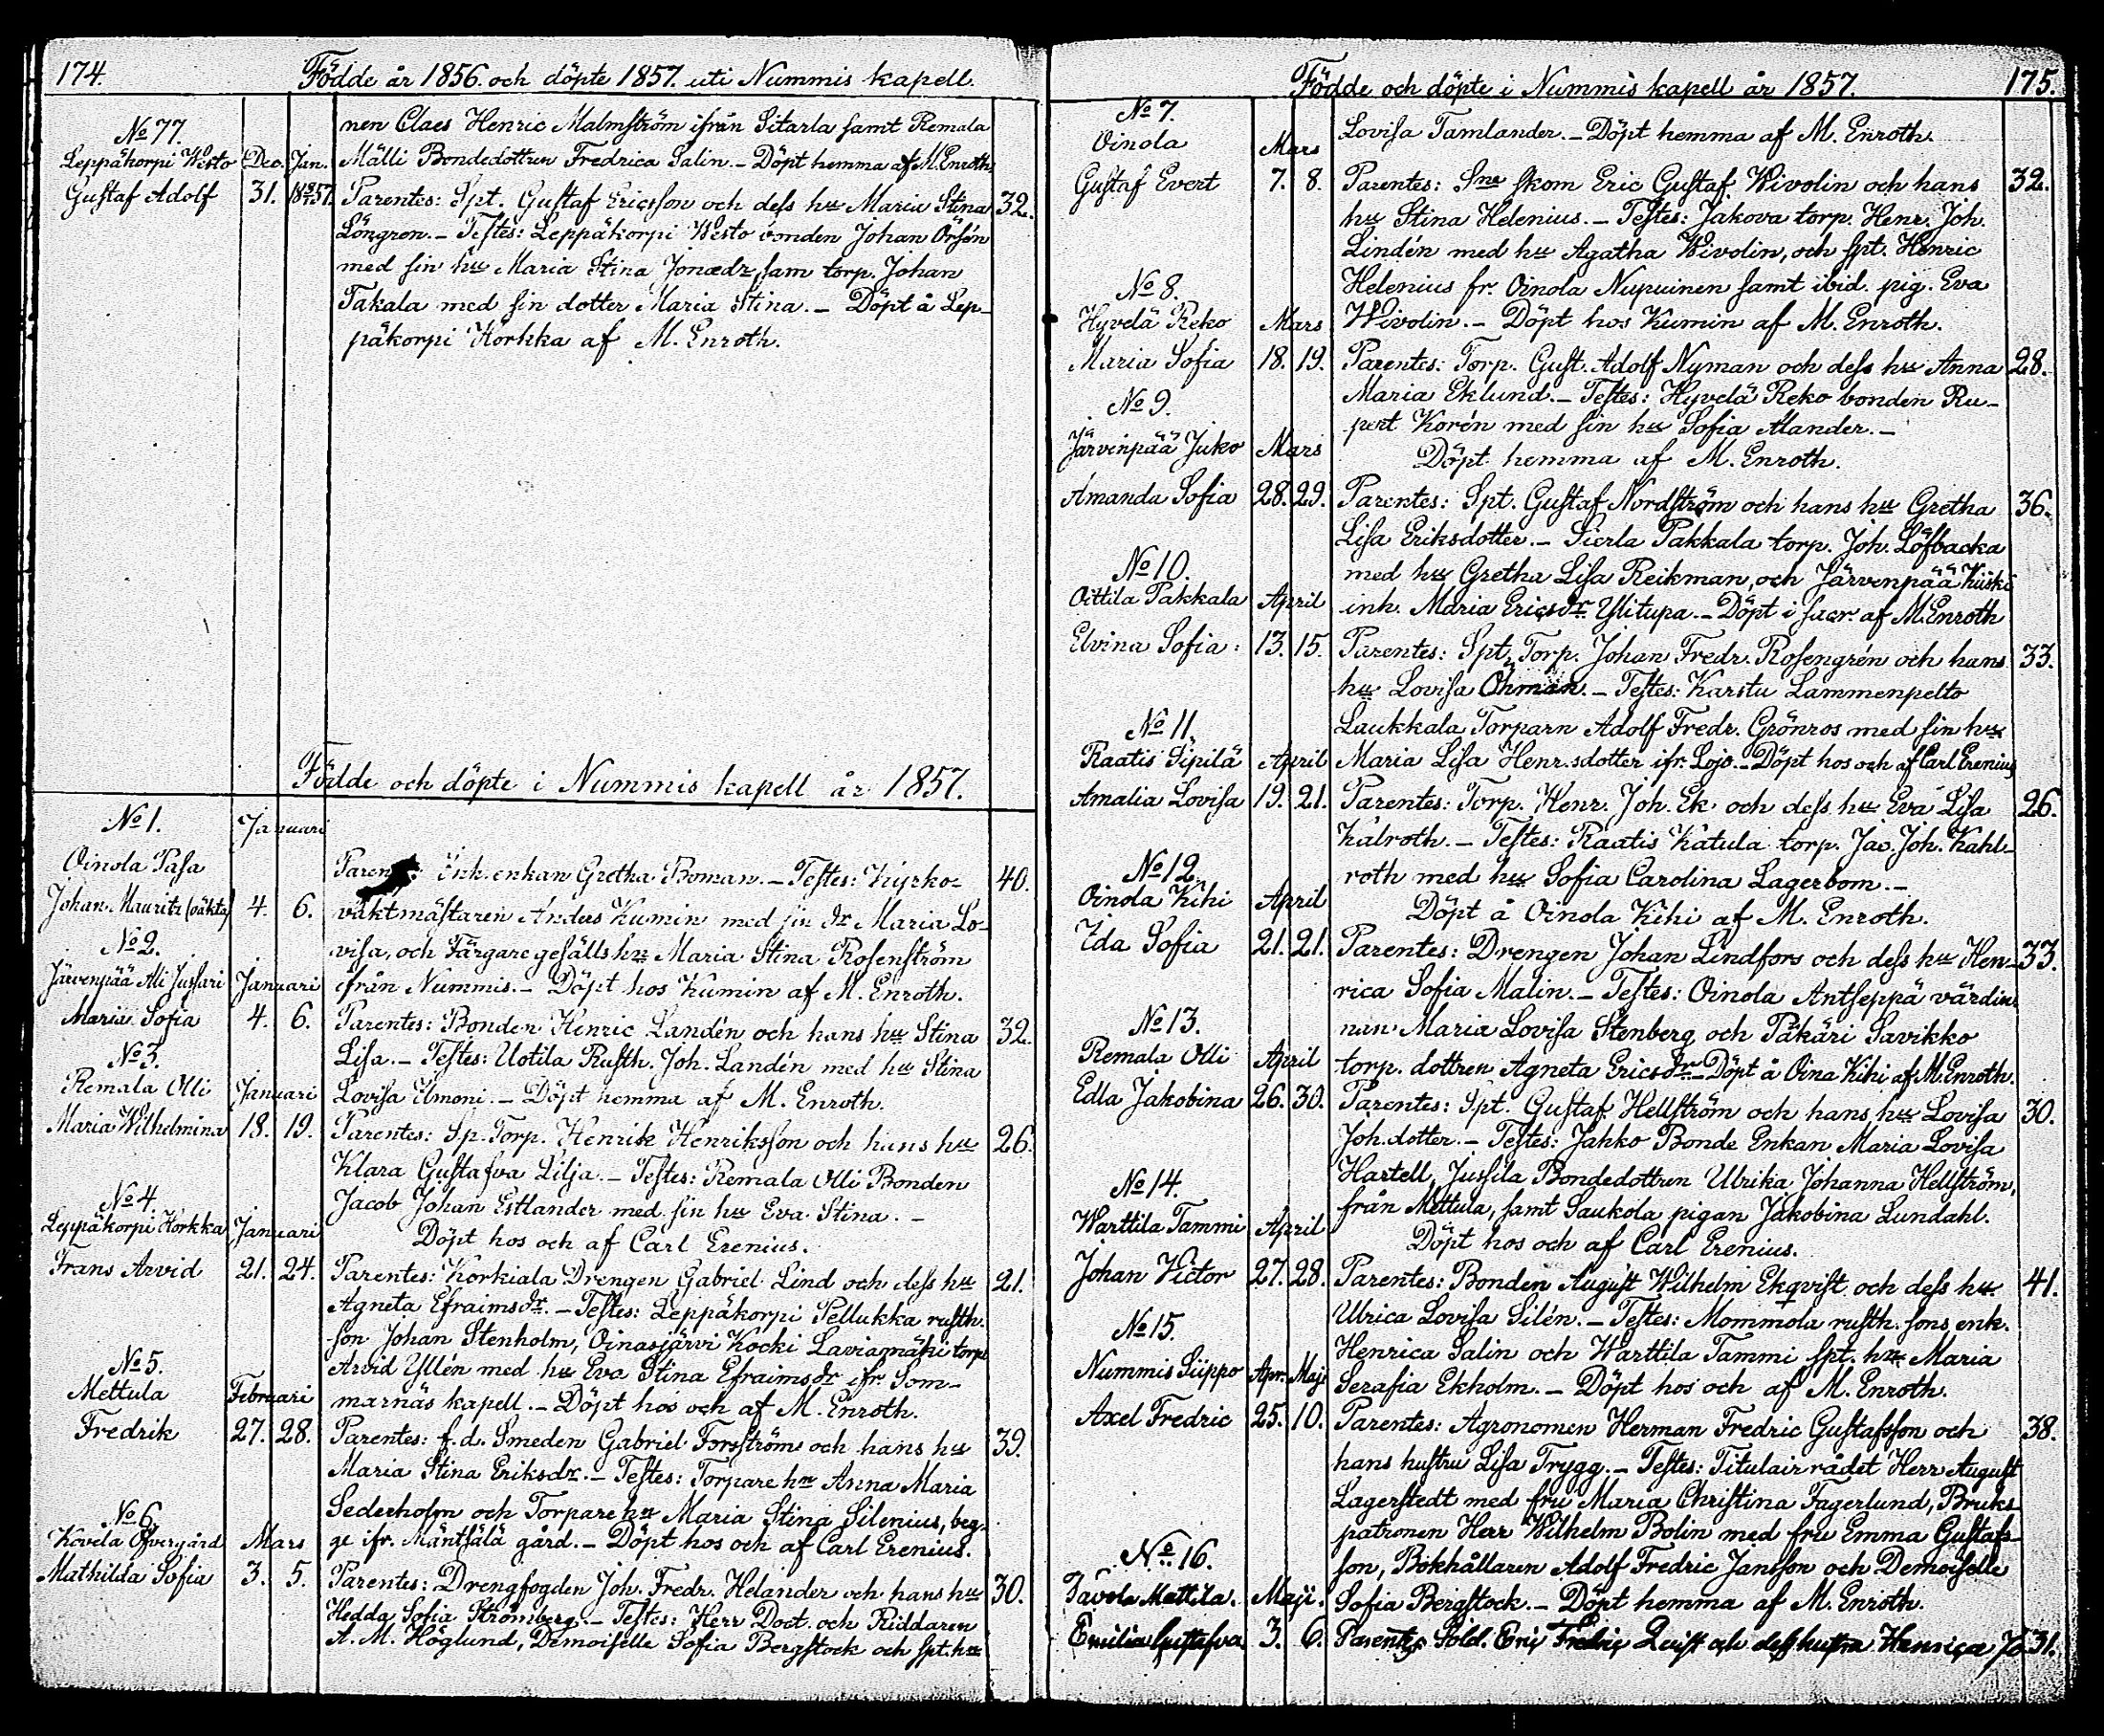 174. Födde år 1856. och döpte 1857. uti Nummis kapell.
nen Claes Henric Malmström ifrån Sitarla samt Remala
No 77.
Leppäkorpi Westo Dec. Jan. Mälli Bondedottren Fredrica Salin. – Döpt hemma af M. Enroth.
Gustaf Adolf 31. 1857. Parentes: Spt. Gustaf Ericsson och dess hu Maria Stina 32.
Löngron. – Testes: Leppäkorpi Westo bonden Johan Orsén
med sin hu Maria Stina Jonædr, sam torp. Johan
Takala med sin dotter Maria Stina. – Döpt å Lep-
päkorpi Korkka af M. Enroth.
Födde och döpte i Nummis kapell år 1857.
No 1. Januari
Oinola Pasa Inh. enkan Gretha Boman. – Testes: Kyrko- 40.
Johan Mauritz (oäkta) 4. 6. vaktmästaren Anders Kumin med sin dr Maria Lo-
No 2. visa, och Färgare gesälls hu Maria Stina Rosenström
Järvenpää Ali Jussari Januari ifrån Nummis. – Döpt hos Kumin af M. Enroth.
Maria Sofia 4. 6. Parentes: Bonden Henric Landén och hans hu Stina 32.
No 3. Lisa. – Testes: Uotila Rusth. Joh. Landén med hu Stina
Remala Olli Januari Lovisa Elmoni. – Döpt hemma af M. Enroth.
Maria Wilhelmina 18. 19. Parentes: Sp. Torp. Henrik Henriksson och hans hu 26.
Klara Gustafva Lilja. – Testes: Remala Olli Bonden
No 4. Jacob Johan Estlander med sin hu Eva Stina. –
Leppäkorpi Korkka Januari Döpt hos och af Carl Erenius.
Frans Arvid 21. 24. Parentes: Korkiala Drengen Gabriel Lind och dess hu 21.
Agneta Efraimsdr. – Testes: Leppäkorpi Pellukka rusth.
son Johan Stenholm, Oinasjärvi Kocki Laviamäki torp.
No 5. Arvid Yllén med hu Eva Stina Efraimsdr ifr Som-
Mettula Februari marnäs kapell. – Döpt hos och af M. Enroth.
Fredrik 27. 28. Parentes: f.d. Smeden Gabriel Forsström och hans hu 39.
Maria Stina Eriksdr. – Testes: Torpare hu Anna Maria
No 6. Sederholm och Torpare hu Maria Stina Silenius, beg-
Kovela Öfvergård Mars ge ifr. Mäntsälä gård. – Döpt hos och af Carl Erenius.
Mathilda Sofia 3. 5. Parentes: Drengfogden Joh. Fredr. Helander och hans hu 30.
Hedda Sofia Strömberg. – Testes: Herr Doct. och Riddaren
A. M. Höglund, Demoiselle Sofia Bergstock och spt. hu
Födde och döpte i Nummis kapell år 1857. 175.
No 7. Lovisa Tamlander. – Döpt hemma af M. Enroth.
Oinola Mars
Gustaf Evert 7. 8. Parentes: Sne skom Eric Gustaf Wivolin och hans 32.
hu Stina Helenius. – Testes: Jakova torp. Henr. Joh.
Lindén med hu Agatha Wivolin, och spt. Henric
No 8. Helenius fr. Oinola Nupuinen samt ibid. pig. Eva
Hyvelä Reko Mars Wivolin. – Döpt hos Kumin af M. Enroth.
Maria Sofia 18. 19. Parentes: Torp. Gust. Adolf Nyman och dess hu Anna 28.
No 9. Maria Eklund. – Testes: Hyvelä Reko bonden Ru-
pert Korén med sin hu Sofia Alander. –
Järvinpää Juko Mars Döpt hemma af M. Enroth.
Amanda Sofia 28. 29. Parentes: Spt. Gustaf Nordström och hans hu Gretha 36.
Lisa Eriksdotter. – Pierla Pakkala torp. Joh. Löfbacka
No 10. med hu Gretha Lisa Reikman, och Järvenpää Kuiski
Oittila Pakkala April inh. Maria Ericsdr Ylitupa. – Döpt i sacr. af M. Enroth
Elvina Sofia 13. 15. Parentes: Spt. Torp. Johan Fredr. Rosengrén och hans 33.
hu Lovisa Öhman. – Testes: Karstu Lammenpelto
No 11. Laukkala Torparn Adolf Fredr. Grönros med sin hu
Raatis Sipilä April Maria Lisa Henr.sdotter ifr. Lojo. – Döpt hos och af Carl Erenius
Amalia Lovisa 19. 21. Parentes: Torp. Henr. Joh. Ek och dess hu Eva Lisa 26.
Kalroth. – Testes: Raatis Katula torp. Jac. Joh. Kahl-
No 12. roth med hu Sofia Carolina Lagerbom. –
Oinola Kihi April Döpt å Oinola Kihi af M. Enroth.
Ida Sofia 21. 21. Parentes: Drengen Johan Lindfors och dess hu Hen- 33.
rica Sofia Malin. – Testes: Oinola Antseppä värdin
No 13. nan Maria Lovisa Stenberg och Päkäri Savikko
Remala Olli April torp. dottren Agneta Ericsdr – Döpt å Oina Kihi af M. Enroth.
Edla Jakobina 26. 30. Parentes: Spt. Gustaf Hellström och hans hu Lovisa 30.
Joh.dotter. – Testes: Jahko Bonde Enkan Maria Lovisa
No 14. Hartell, Jussila Bondedottren Ulrika Johanna Hellström,
från Mettula, samt Saukola pigan Jakobina Lundahl.
Warttila Tammi April Döpt hos och af Carl Erenius.
Johan Victor 27. 28. Parentes: Bonden August Wilhelm Ekqvist och dess hu 41.
Ulrica Lovisa Silén. – Testes: Mommola rusth. sons enk.
No 15. Henrica Salin och Warttila Tammi spt. hu Maria
Nummis Siippo Apr. Maji Serafia Ekholm. – Döpt hos och af M. Enroth.
Axel Fredric 25. 10. Parentes: Agronomen Herman Fredric Gustafsson och 38.
hans hustru Lisa Trygg. – Testes: Titulair rådet Herr August
Lagerstedt med fru Maria Christina Fagerlund, Bruks-
patronen Herr Wilhelm Bolin med fru Emma Gustafs-
No 16. son, Bokhållaren Adolf Fredric Jansson och Demoiselle
Tavola Mattila. Maji. Sofia Bergstock. – Döpt hemma af M. Enroth.
Emilia Gustafva 3. 6. Parentes Sold. Eric Fredric Quist och dess hustru Henrica Jo 31.